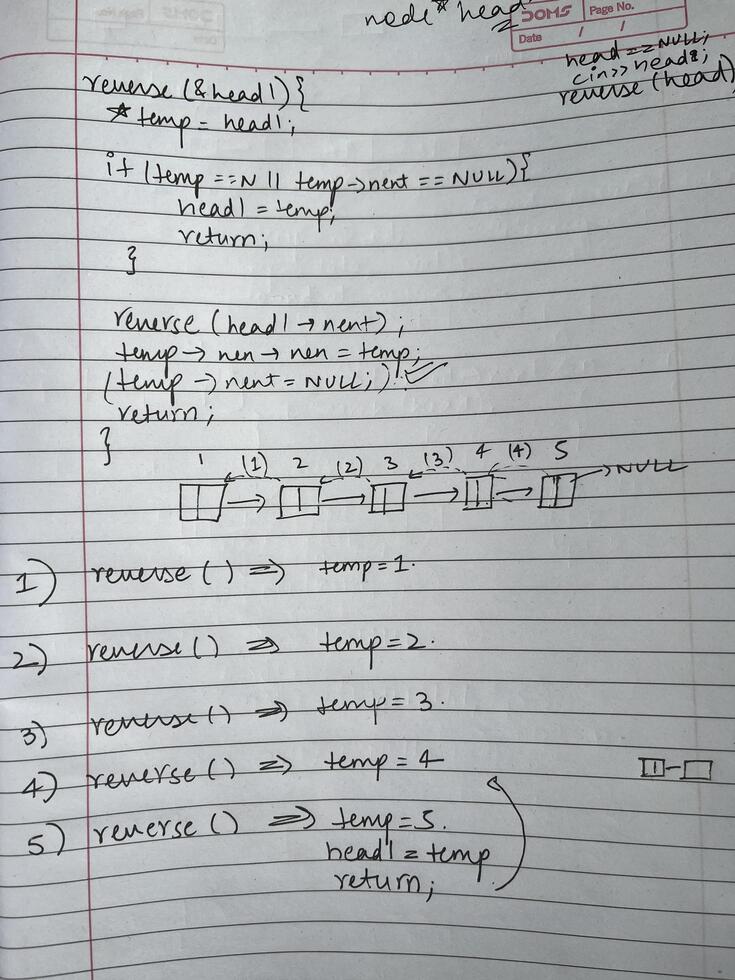 node * head
DOMS
Page No.
Date / /
head == NULL;
cin>> head;
reverse (head)
reverse (&head1) {
* temp = head1;
if (temp == N || temp->nent == NULL) {
head1 = temp;
return;
}
reverse (head1 → nent);
temp → nen → nen = temp;
(temp → nent = NULL;)
return;
}
1 (1) 2 (2) 3 (3) 4 (4) 5
→ NULL
1) reverse () ⇒ temp = 1.
2) reverse () ⇒ temp = 2.
3) reverse () ⇒ temp = 3.
4) reverse () ⇒ temp = 4
5) reverse () ⇒ temp = 5.
head1 = temp
return;